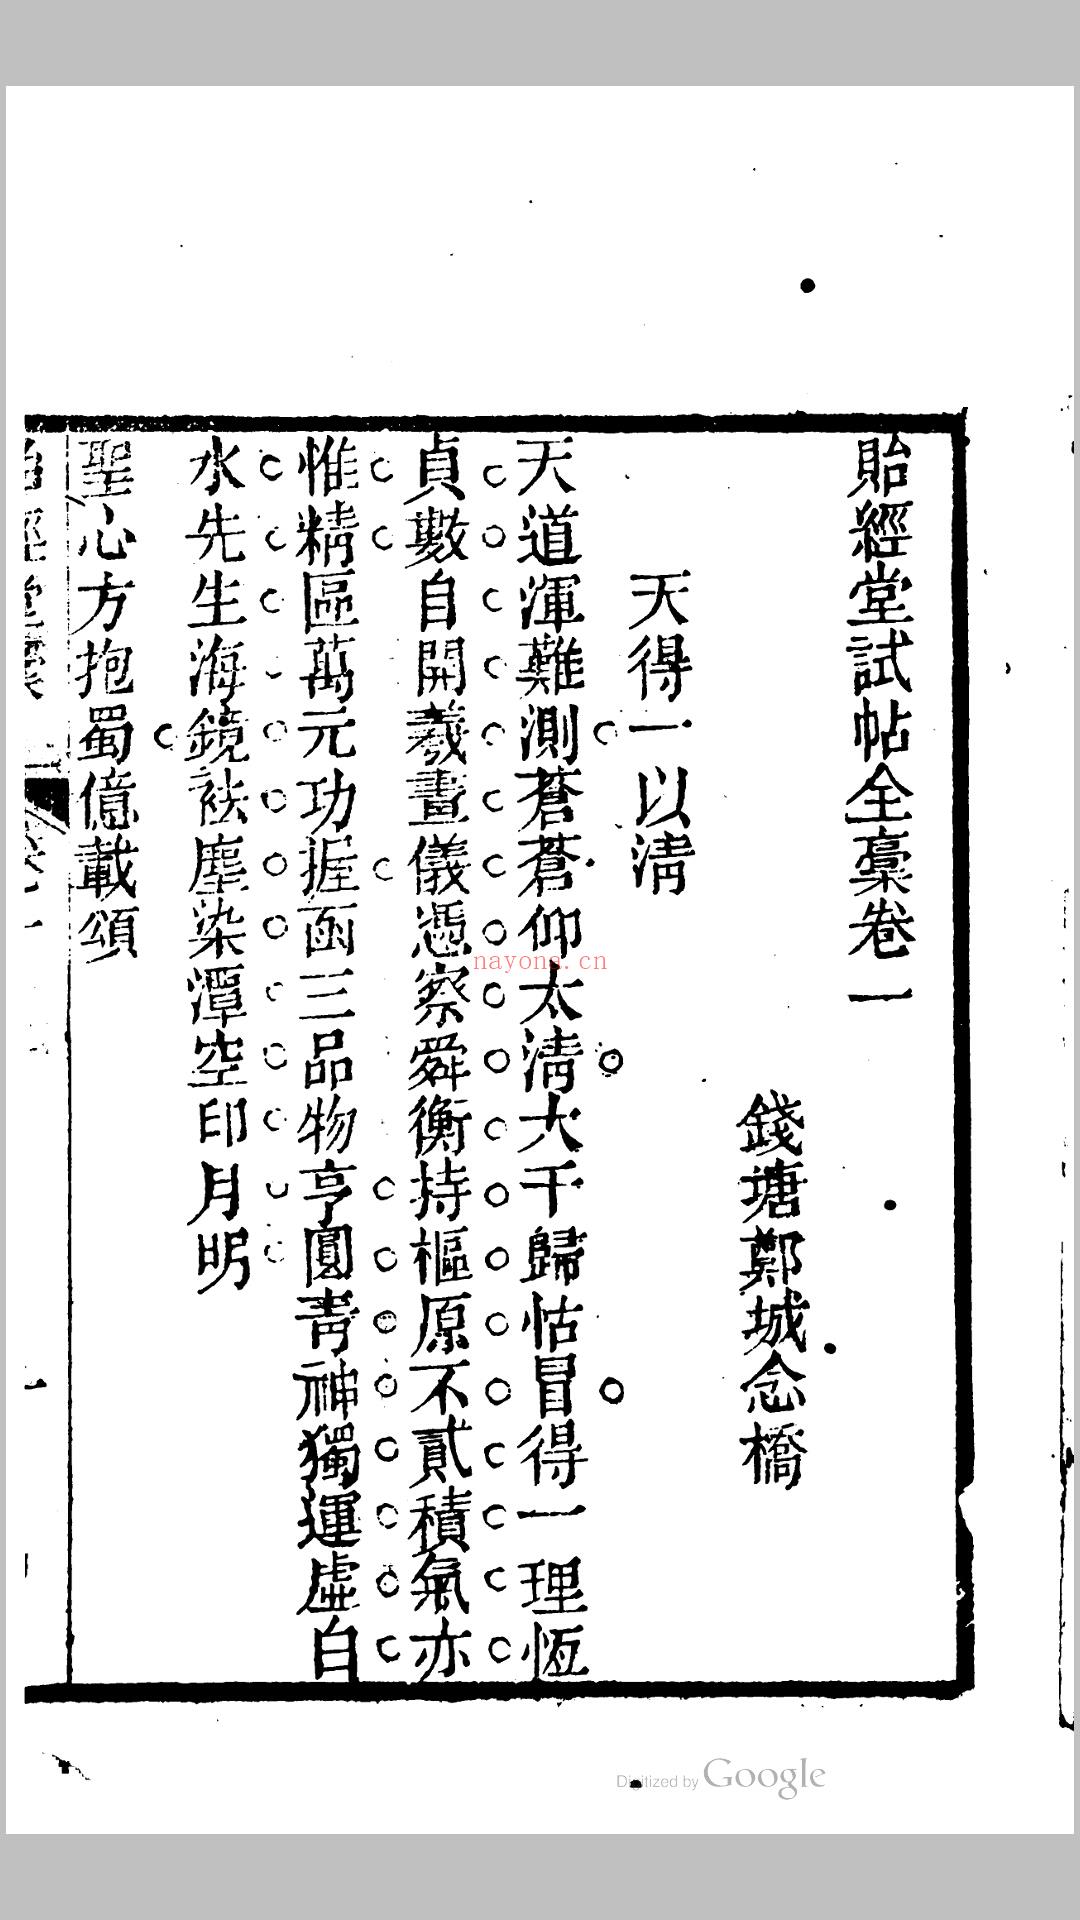 貽經堂試帖全藁卷一
錢塘鄭城念橋
天得一以淸
天道渾難測蒼蒼仰太淸大千歸怙冒得一理恆
貞數自開羲畫儀憑察舜衡持樞原不貳積氣亦
惟精區萬元功握函三品物亨圓靑神獨運虛白
水先生海鏡袪塵染潭空印月明
聖心方抱蜀億載頌
nayona.cn
Digitized by Google